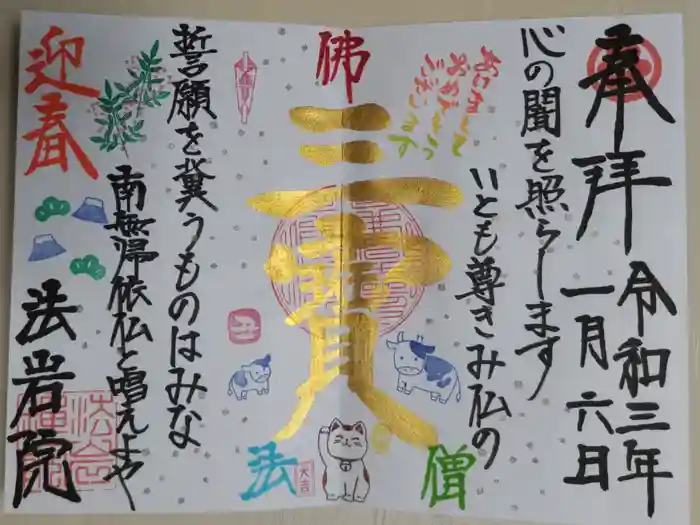 奉拝
令和三年
一月六日
心の闇を照らします
いとも尊きみ仏の
あけまして
おめでとう
ございます
佛
三寳
法
僧
大吉
丑
誓願を冀うものはみな
南無帰依仏と唱えよや
迎春
法岩院